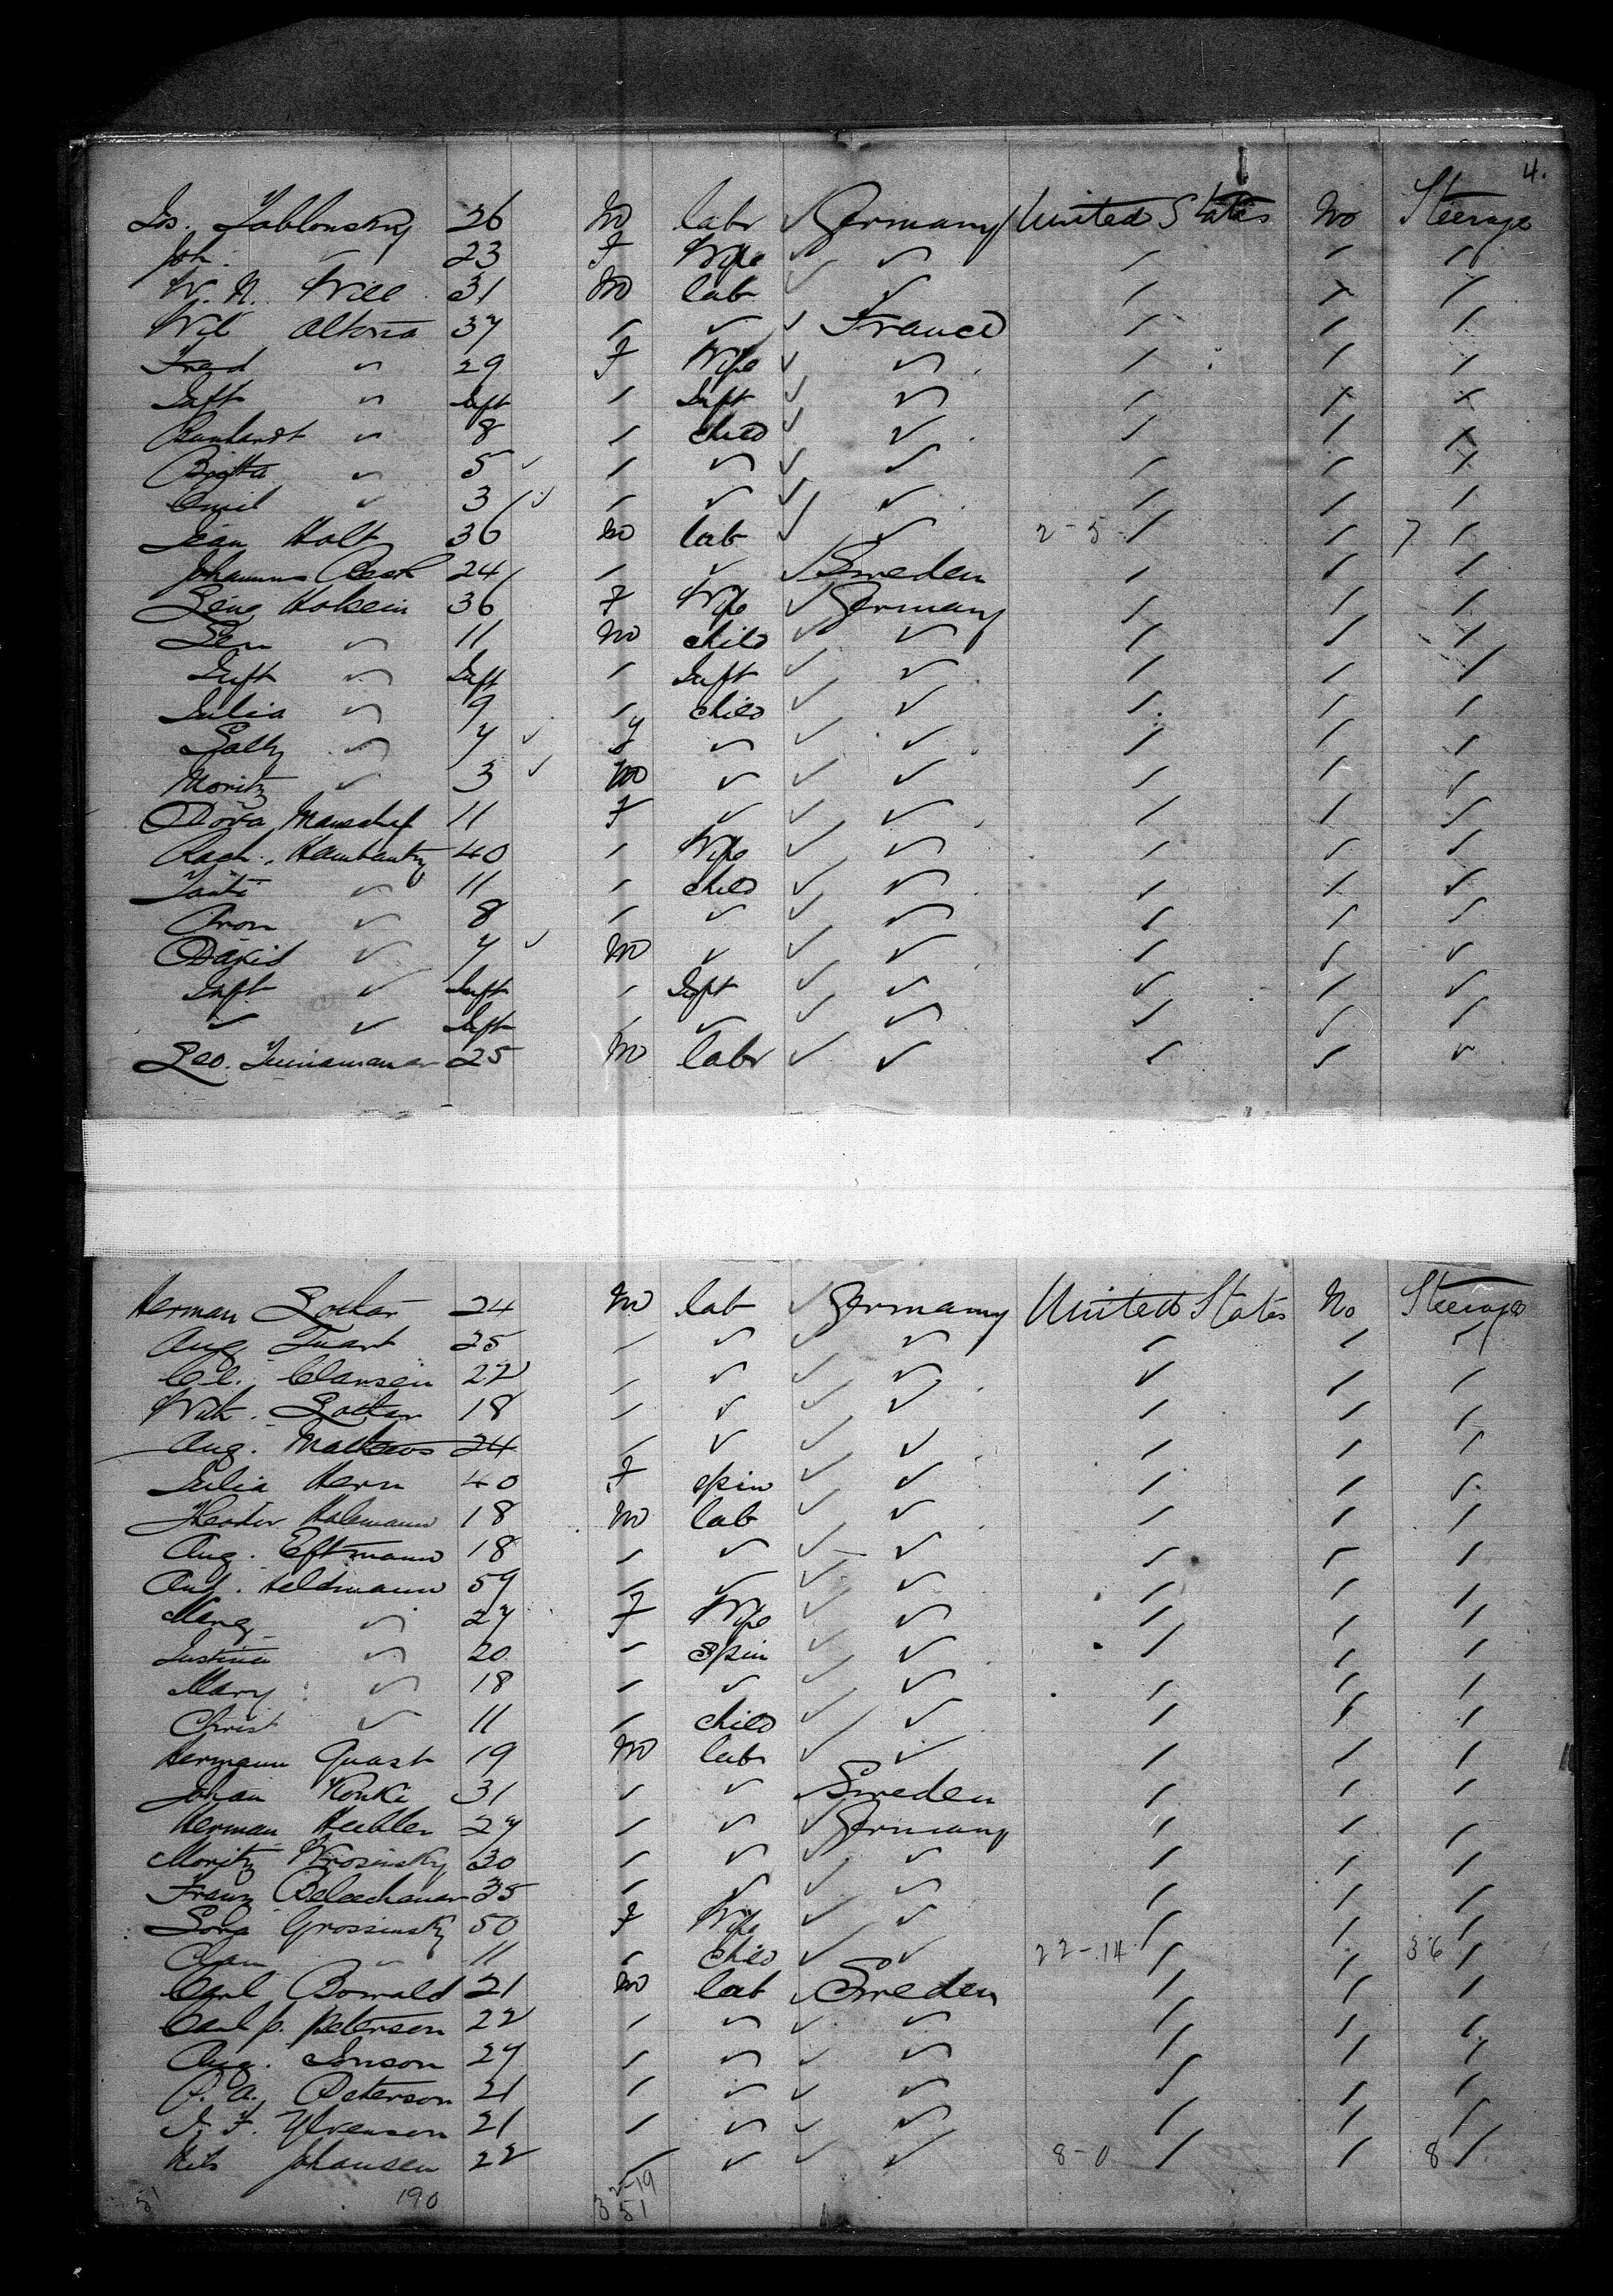 4.
Jos. Jablonsky 26 M labr ✓ Germany United States No Steerage
Joh. " 23 F Wife ✓ ✓ / / /
W. N. Will 31 M lab ✓ ✓ / / /
Wil Altona 37 / ✓ ✓ France / / /
Fred " 29 F Wife ✓ ✓ / / /
Inft " Inft / Inft ✓ ✓ / / /
" 8 / child ✓ ✓ / / /
" 5 ✓ / ✓ ✓ ✓ / / /
Emil " 3 / ✓ / ✓ ✓ ✓ / / /
Jean Holt 36 M lab ✓ ✓ 2-5 / / 7 /
Johannes 24 / / ✓ ✓ Sweden / / /
Lene Holsein 36 F Wife ✓ Germany / / /
" 11 M child ✓ ✓ / / /
Inft " Inft / Inft ✓ ✓ / / /
Julia " 9 / child ✓ ✓ / / /
Sally " 7 ✓ F ✓ ✓ ✓ / / /
Moritz " 3 ✓ M ✓ ✓ ✓ / / /
Dora 11 F ✓ ✓ ✓ / / /
Rach. 40 / Wife ✓ ✓ / / /
" 11 / child ✓ ✓ / / /
Aron " 8 / ✓ ✓ ✓ / / /
David " 7 ✓ M ✓ ✓ ✓ / / /
Inft " Inft / Inft ✓ ✓ / / /
" " Inft / ✓ ✓ ✓ / / /
Leo. 25 M labr ✓ ✓ / / /
Herman Lothar 24 M lab ✓ Germany United States No Steerage
Aug. 25 / ✓ ✓ ✓ / / /
Cl. Clausen 22 / ✓ ✓ ✓ / / /
Lothar 18 / ✓ ✓ ✓ / / /
Aug. Mathews 24 / ✓ ✓ ✓ / / /
Julia Hern 40 F spin ✓ ✓ / / /
Theodor Halemann 18 M lab ✓ ✓ / / /
Aug. Eftmann 18 / ✓ ✓ ✓ / / /
And. Heldmann 59 / ✓ ✓ ✓ / / /
" 27 F Wife ✓ ✓ / / /
Justina " 20 / Spin ✓ ✓ / / /
Mary " 18 / ✓ ✓ ✓ / / /
Christ " 11 / child ✓ ✓ / / /
Hermann Quast 19 M labr ✓ ✓ / / /
Johan 31 / ✓ Sweden / / /
Herman Heubler 27 / ✓ ✓ Germany / / /
Moritz Wrosinsky 30 / ✓ ✓ ✓ / / /
Franz 35 / ✓ ✓ ✓ / / /
Grossinsky 50 F Wife ✓ ✓ / / /
" 11 / child ✓ ✓ 22-14 / / 36 /
Carl Bowald 21 M lab ✓ Sweden / / /
Carl p. Peterson 22 / ✓ ✓ ✓ / / /
Aug. Jonson 27 / ✓ ✓ ✓ / / /
P. A. Peterson 21 / ✓ ✓ ✓ / / /
J. F. 21 / ✓ ✓ ✓ / / /
Nils Johansen 22 / ✓ ✓ ✓ 8-0 / / 8 /
51 190 32-19
351